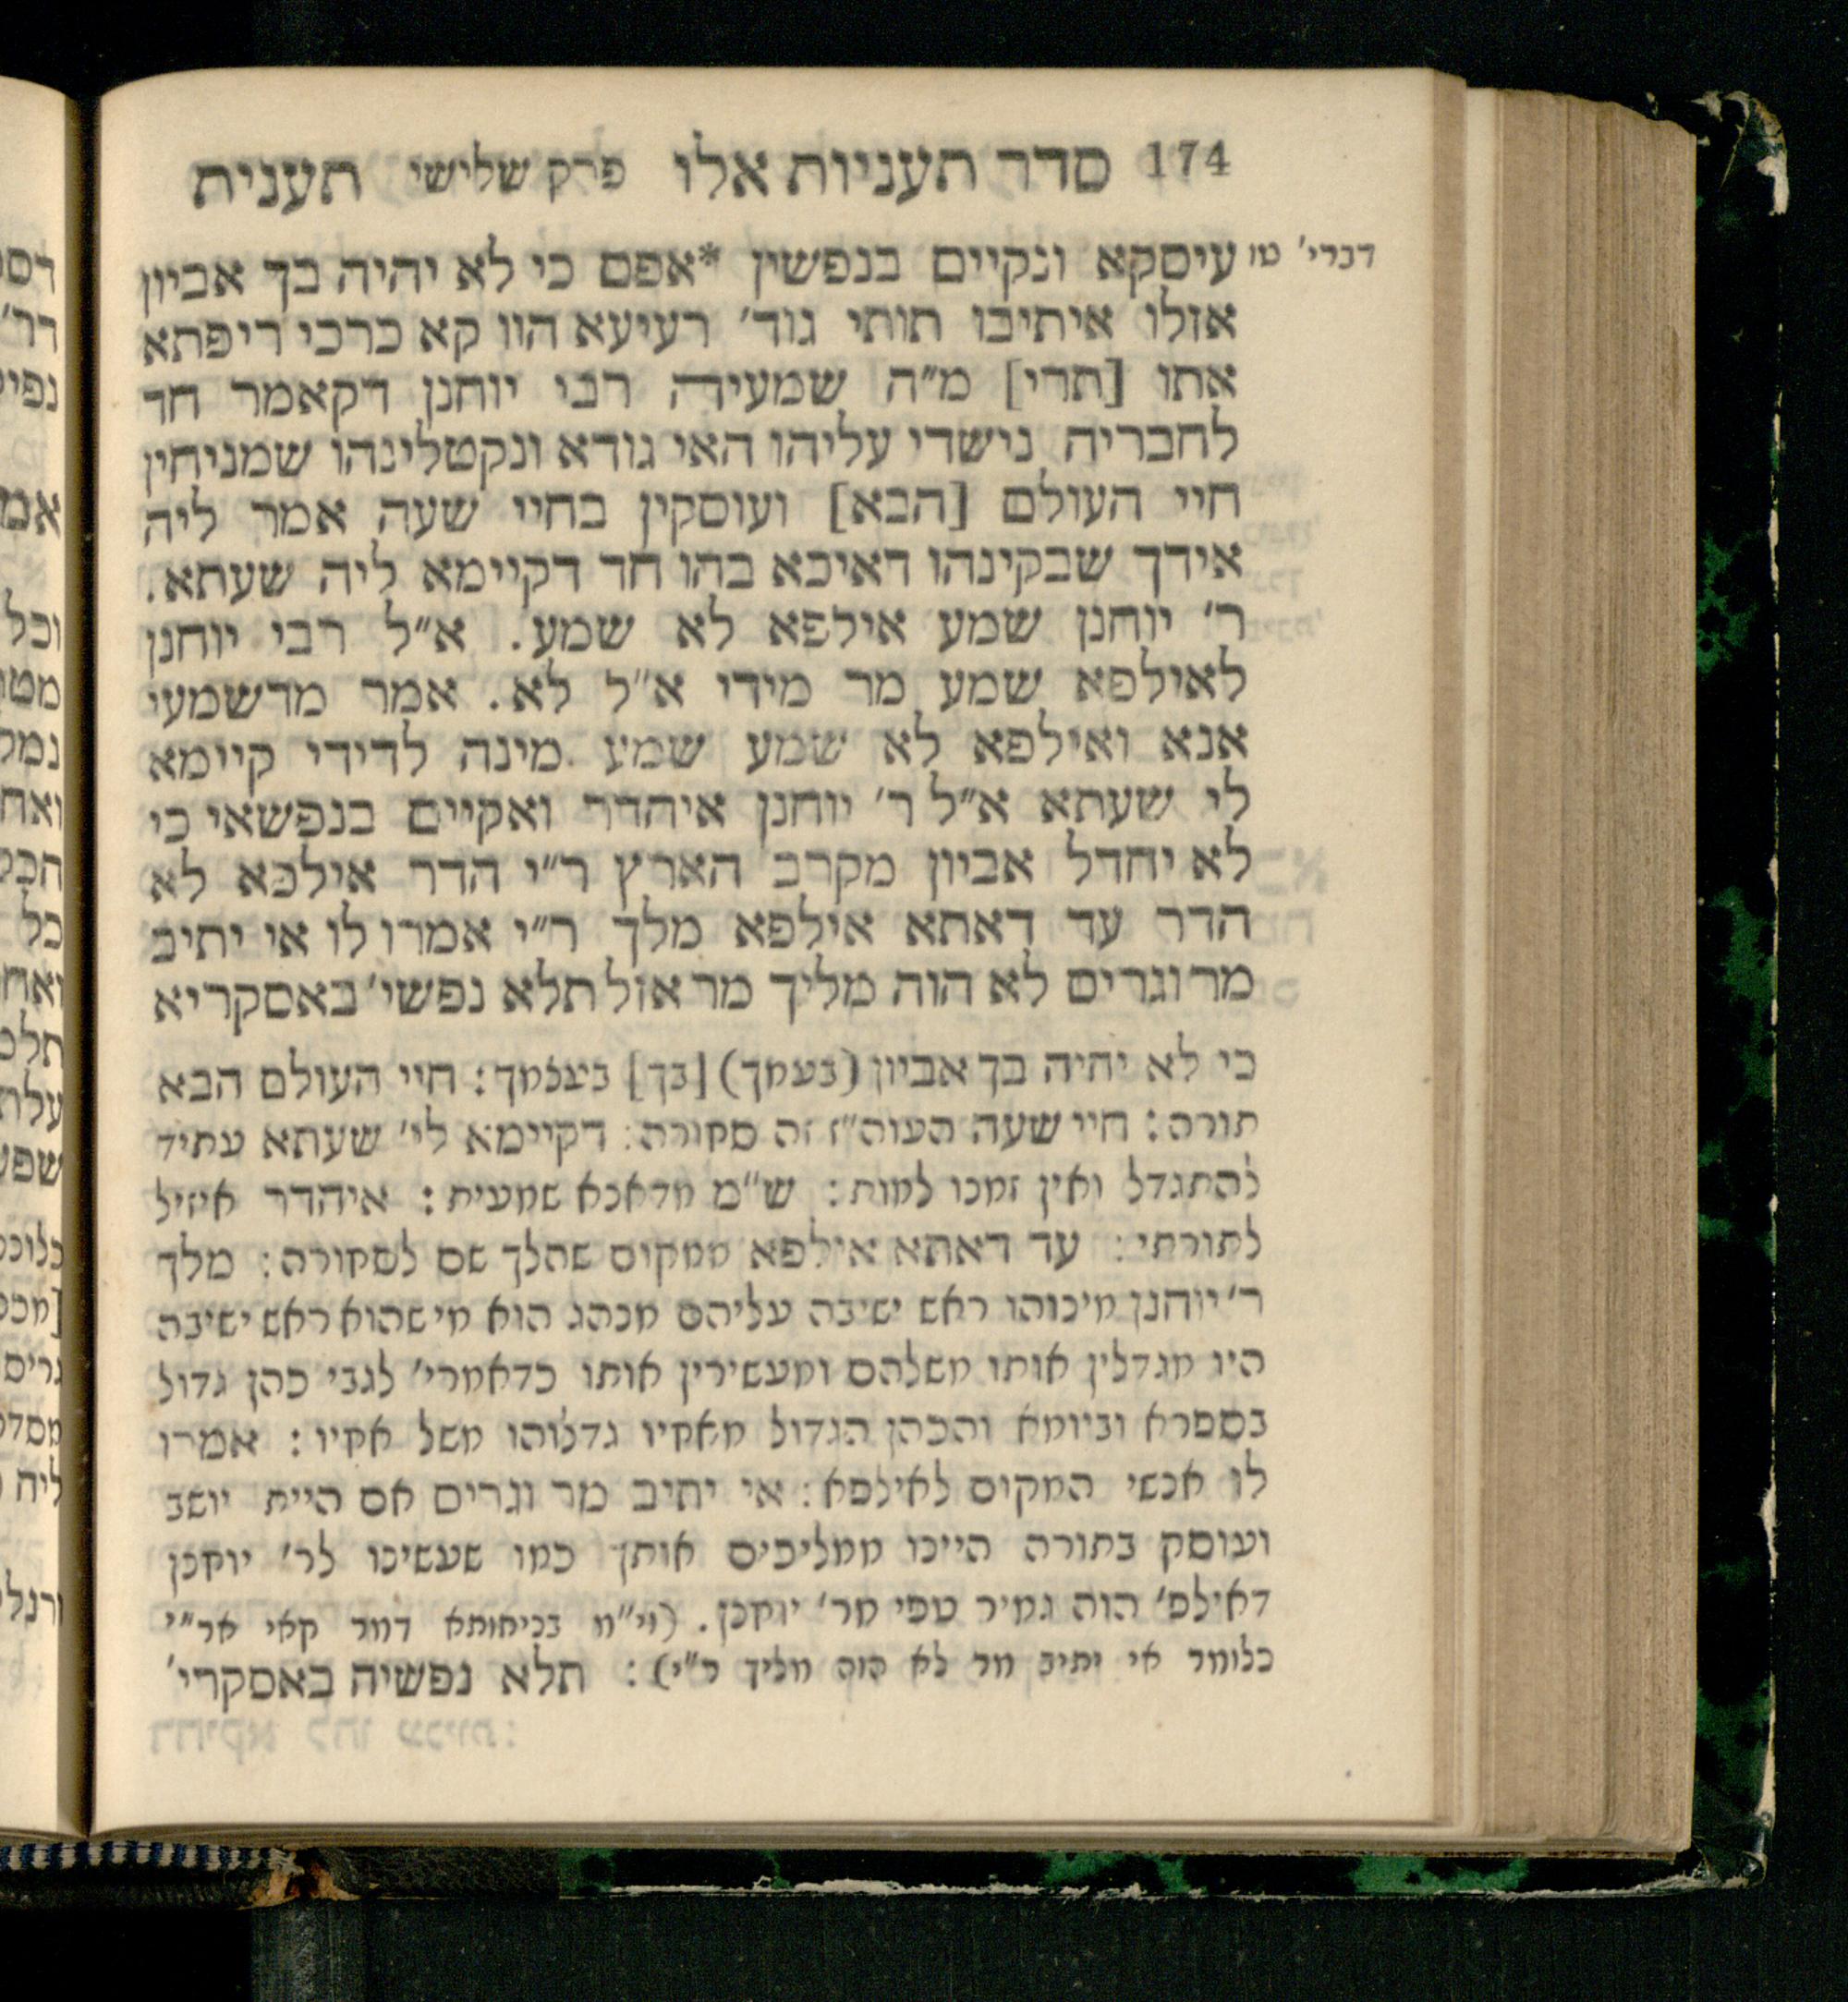 174 סדר תעניות אלו פרק שלישי תענית
דברי׳ טו
עיסקא ונקיים בנפשין *אפס כי לא יהיה בך אביון
אזלו איתיבו תותי גוד׳ רעיעא הוו קא כרכי ריפתא
אתו [תרי] מ״ה שמעיה רבי יוחנן דקאמר חד
לחבריה נישדי עליהו האי גודא ונקטלינהו שמניחין
חיי העולם [הבא] ועוסקין בחיי שעה אמר ליה
אידך שבקינהו דאיכא בהו חד דקיימא ליה שעתא.
ר׳ יוחנן שמע אילפא לא שמע. א״ל רבי יוחנן
לאילפא שמע מר מידי א״ל לא. אמר מדשמעי
אנא ואילפא לא שמע שמע מינה לדידי קיימא
לי שעתא א״ל ר׳ יוחנן איהדר ואקיים בנפשאי כי
לא יחדל אביון מקרב הארץ ר״י הדר אילפא לא
הדר עד דאתא אילפא מלך ר״י אמרו לו אי יתיב
מר וגרים לא הוה מליך מר אזל תלא נפשי׳ באסקריא
כי לא יהיה בך אביון (בעמך) [בך] בעצמך: חיי העולם הבא
תורה: חיי שעה העוה״ז זה סחורה: דקיימא לי׳ שעתא עתיד
להתגדל ואין זמנו למות: ש״מ מדאנא שמעית: איהדר אזיל
לתורתי: עד דאתא אילפא ממקום שהלך שם לסחורה: מלך
ר׳ יוחנן מינוהו ראש ישיבה עליהם מנהג הוא מי שהוא ראש ישיבה
היו מגדלין אותו משלהם ומעשירין אותו כדאמרי׳ לגבי כהן גדול
בספרא וביומא והכהן הגדול מאחיו גדלוהו משל אחיו: אמרו
לו אנשי המקום לאילפא: אי יתיב מר וגרים אם היית יושב
ועוסק בתורה היינו ממליכים אותך כמו שעשינו לר׳ יוחנן
דאילפ׳ הוה גמיר טפי מר׳ יוחנן. (וי״מ בניחותא דמר קאי אר״י
כלומר אי יתיב מר לא הוה מליך ר״י): תלא נפשיה באסקרי׳